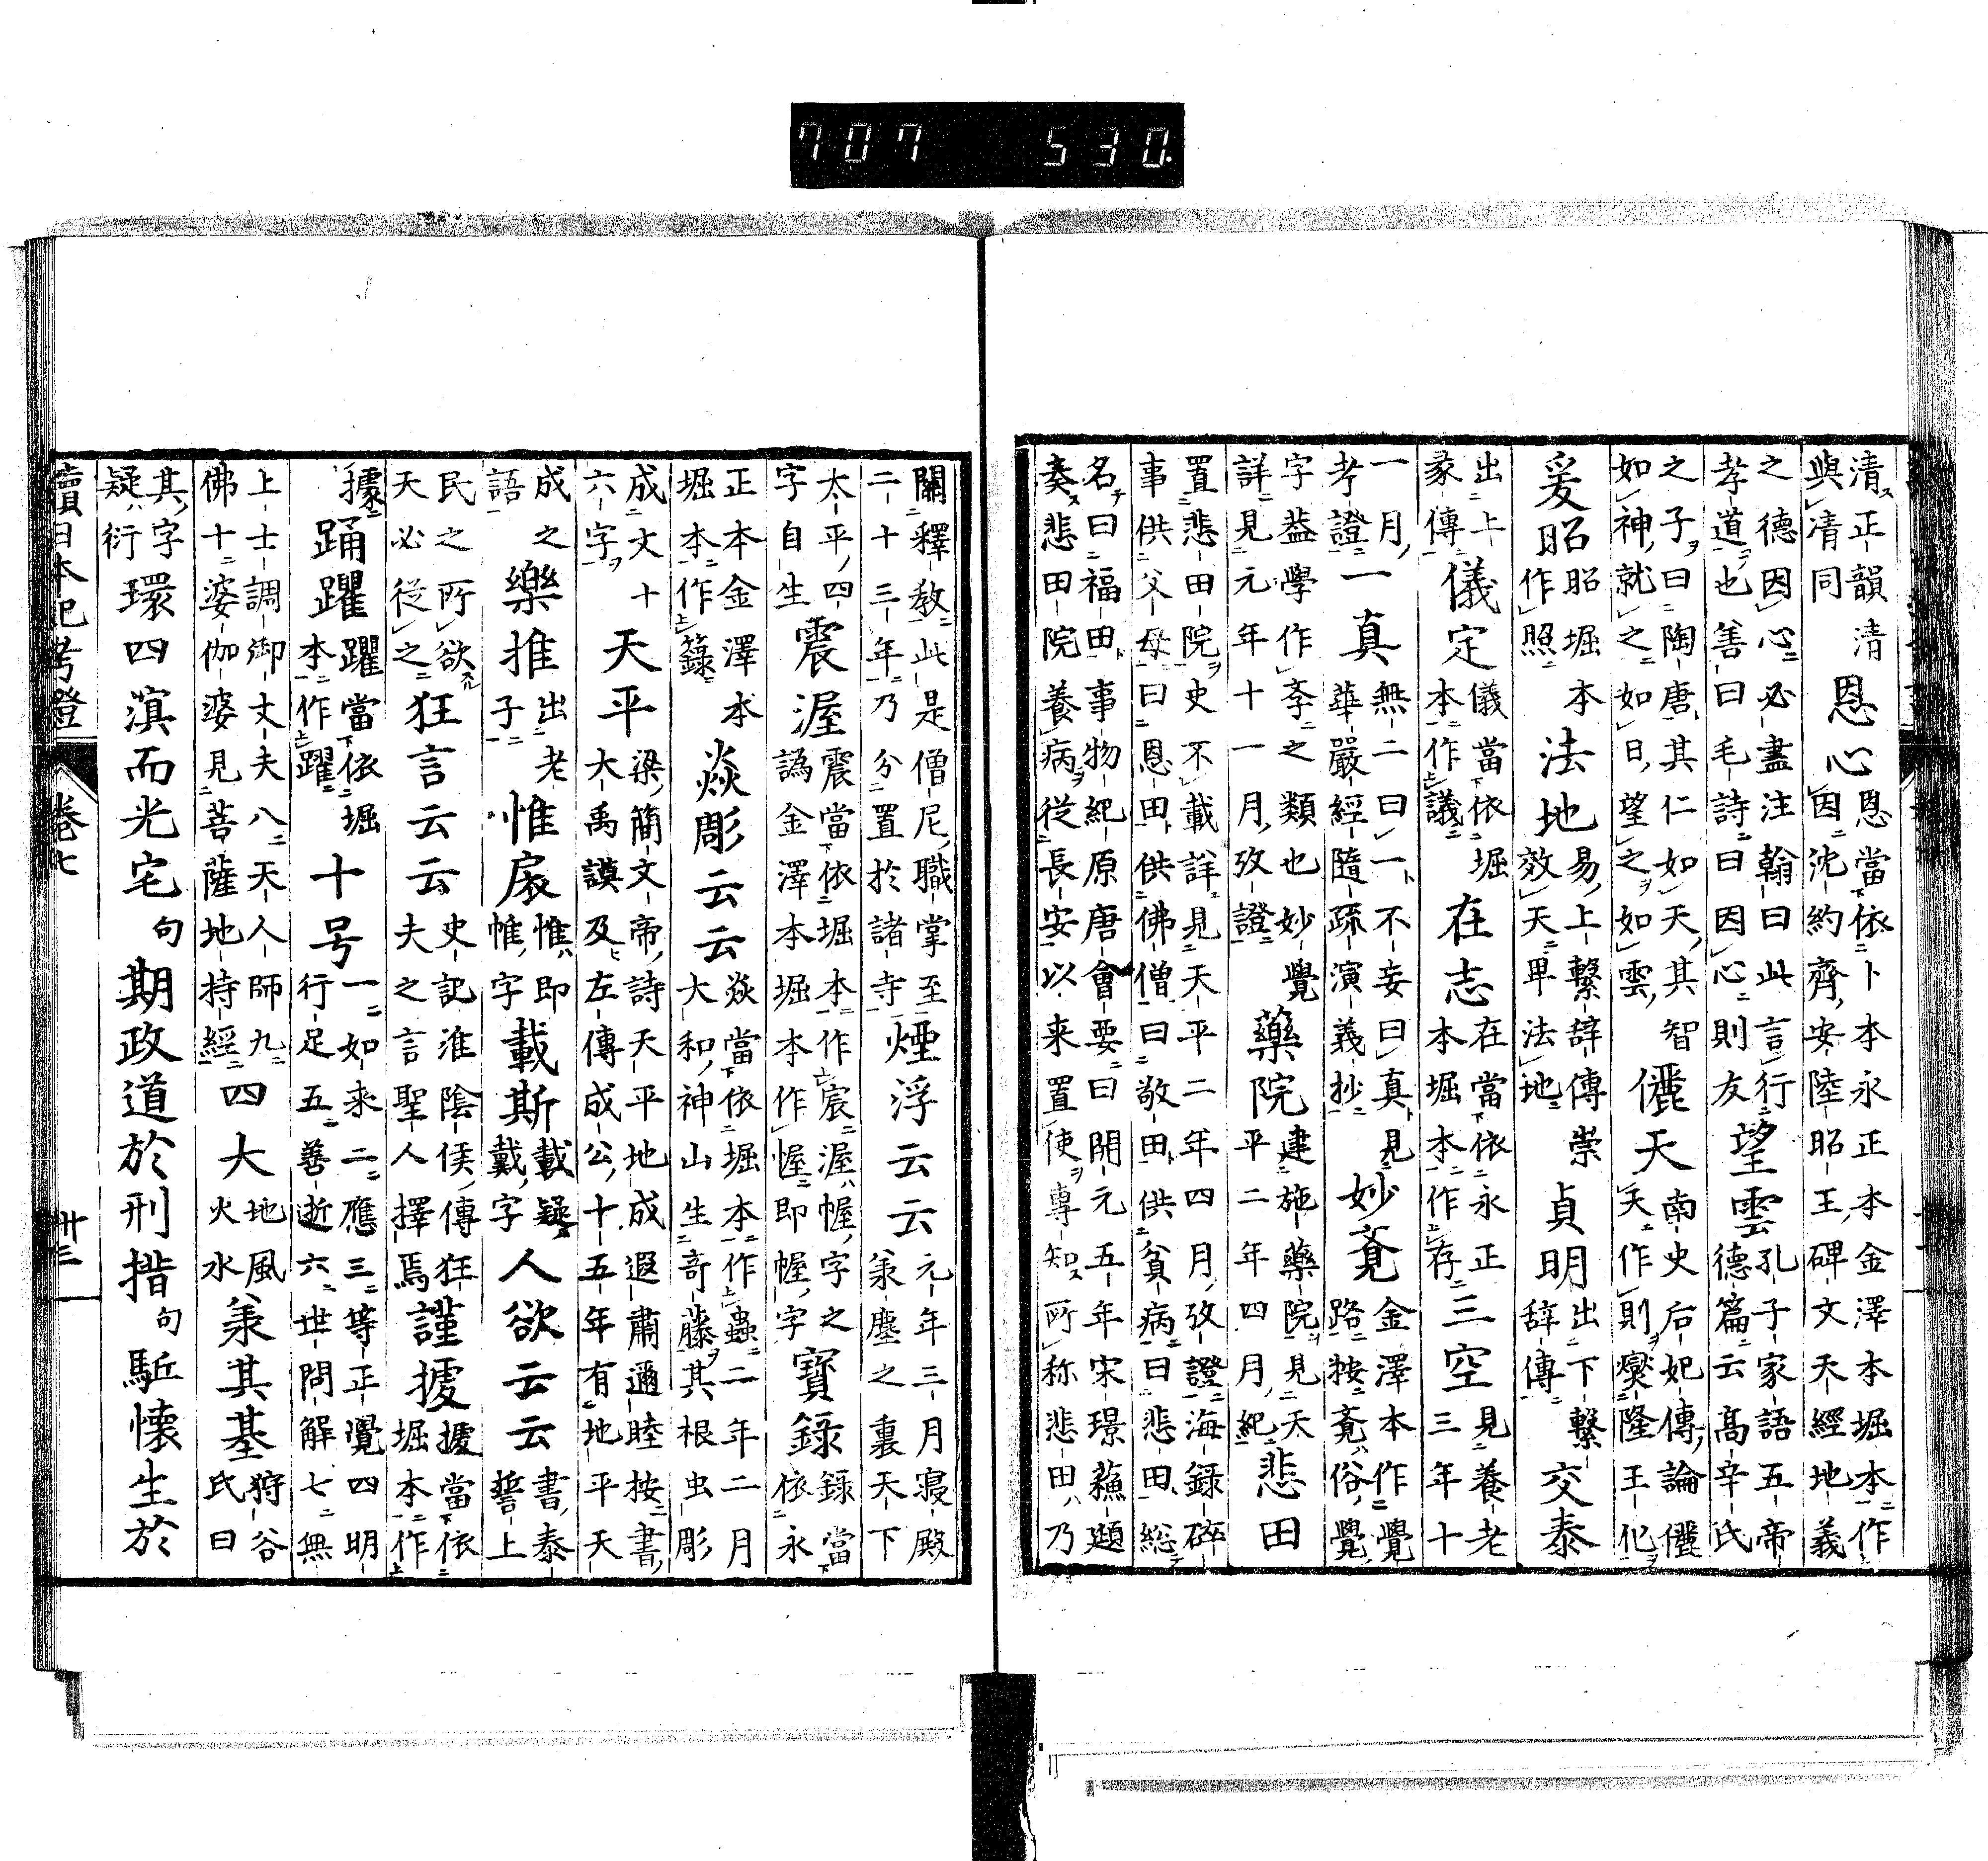 707 530
清正韻清
與清同
恩心
恩當依卜本永正本金澤本堀本作
因沈約齊安陸昭王碑文天經地義
之德因心必盡注翰曰此言行
孝道也善曰毛詩曰因心則友
望雲
孔子家語五帝
德篇云高辛氏
之子曰陶唐其仁如天其智
如神就之如日望之如雲
儷天
南史后妃傳論儷
天作則爕隆王化
爰昭
昭堀本
作照
法地
易上繫辞傳崇
效天卑法地
貞明
出下繋
辞傳
交泰
出上
彖傳
儀定
儀當依堀
本作議
在志
在當依永正
本堀本作存
三空
見養老
三年十
一月
考證
一真
無二曰一不妄曰真見
華嚴經隨疏演義抄
妙覔
金澤本作覺
路按覔俗覺
字葢學作斈之類也妙覺
詳見元年十一月攷證
藥院
建施藥院見天
平二年四月紀
悲田
置悲田院史不載詳見天平二年四月攷證海録碎
事供父母曰恩田供佛僧曰敬田供貧病曰悲田総
名曰福田事物紀原唐會要曰開元五年宋璟蘓頲
奏悲田院養病従長安以来置使專知所称悲田乃
關釋教此是僧尼職掌至
二十三年乃分置於諸寺
煙浮云云
元年三月寝殿
承塵之裏天下
太平四
字自生
震渥
震當依堀本作宸渥幄字之
譌金澤本堀本作幄即幄字
寳録
録當
依永
正本金澤本
堀本作籙
焱彫云云
焱當依堀本作蟲二年二月
大和神山生奇藤其根虫彫
成文十
六字
天平
梁簡文帝詩天平地成遐肅邇睦按書
大禹謨及左傳成公十五年有地平天
成之
語
樂推
出老
子
惟扆
惟即
帷字
載斯
載疑
戴字
人欲云云
書泰
誓上
民之所欲
天必従之
狂言云云
史記淮陰侯傳狂
夫之言聖人擇焉
謹㨿
㨿當依
堀本作
據
踊躍
躍當依堀
本作躍
十号
一如来二應三等正覺四明
行足五善逝六世間解七無
上士調御丈夫八天人師九
佛十婆伽婆見菩薩地持經
四大
地風
火水
承其基
狩谷
氏曰
其字
疑衍
環四滇而光宅句期政道於刑措句駈懷生於
續日本紀考證
卷七
卅三